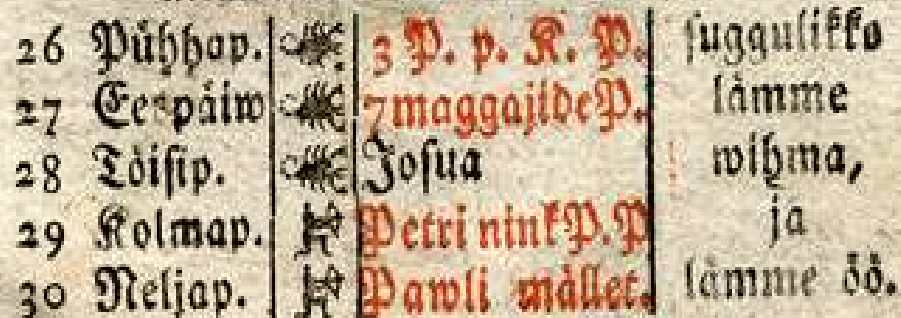 26 Pühhap. 3 P. p. K. P. suggulikko
27 Eespäiw 7 maggajide P. lämme
28 Töisip. Josua wihma,
29 Kolmap. Petri nink P. P ja
30 Neljap. Pawli mället. lämme öö.